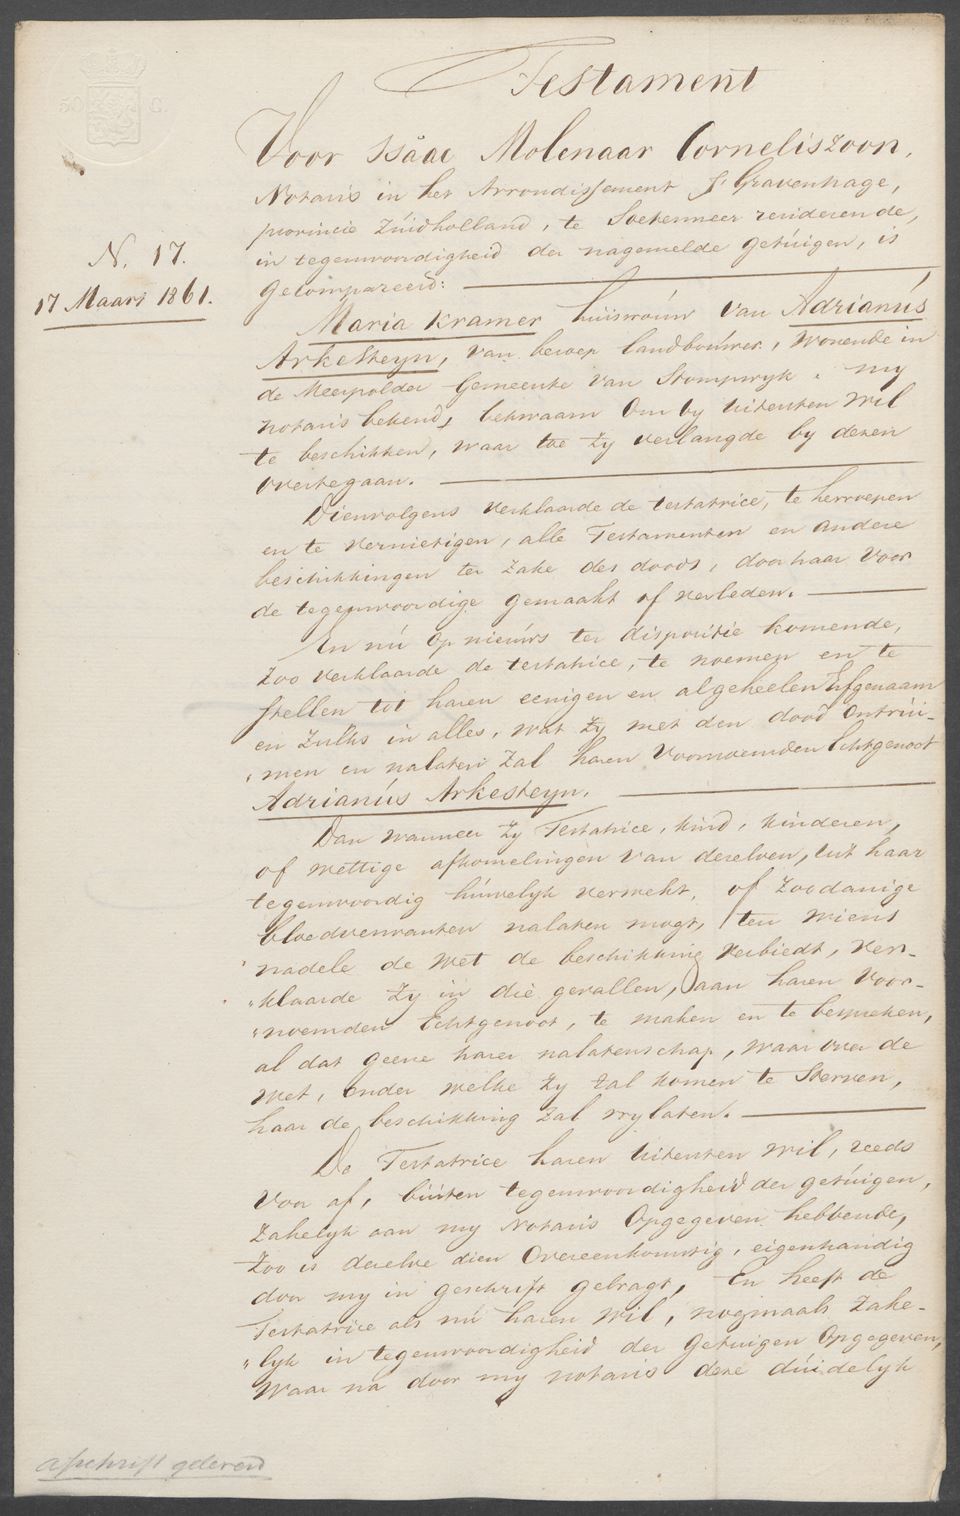 50 C.
Testament
Voor Isaac Molenaar Corneliszoon,
Notaris in het Arrondissement S'Gravenhage,
provincie Zuidholland, te Soetermeer residerende,
in tegenwoordigheid der nagemelde getuigen, is
gecompareerd:
N. 17.
17 Maart 1861.
Maria Kramer huisvrouw van Adrianus
Arkesteyn, van beroep landbouwer, wonende in
de Meerpolder Gemeente van Stompwyk, my
notaris bekend, bekwaam om by Uitersten wil
te beschikken, waar toe zy verlangde by dezen
overtegaan.
Dienvolgens verklaarde de testatrice, te herroepen
en te vernietigen, alle Testamenten en andere
beschikkingen ter zake des doods, door haar voor
de tegenwoordige gemaakt of verleden.
En nu op nieuws ter dispositie komende,
zoo verklaarde de testatrice, te noemen en te
stellen tot haren eenigen en algeheelen Erfgenaam
en zulks in alles, wat zy met den dood ontrui-
"men en nalaten zal haren voornoemden Echtgenoot
Adrianus Arkesteyn.
Dan wanneer zy Testatrice, kind, kinderen,
of wettige afkomelingen van dezelven, uit haar
tegenwoordig huwelyk verwekt, of zoodanige
bloedverwanten nalaten mogt, ten wiens
nadele de wet de beschikking verbiedt, ver-
"klaarde zy in die gevallen, aan haren voor-
"noemden Echtgenoot, te maken en te bespreken,
al dat geene harer nalatenschap, waar over de
wet, onder welke zy zal komen te sterven,
haar de beschikking zal vrylaten.
De Testatrice haren Uitersten wil, reeds
voor af, buiten tegenwoordigheid der getuigen,
zakelyk aan my Notaris opgegeven hebbende,
zoo is dezelve dien overeenkomstig, eigenhandig
door my in geschrift gebragt, En heeft de
Testatrice als nu haren wil, nogmaals zake-
"lyk in tegenwoordigheid der getuigen opgegeven,
waar na door my notaris deze duidelyk
afschrift geleverd